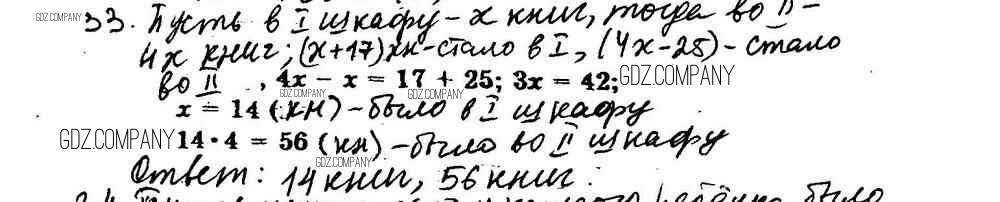 GDZ.COMPANY 33. Пусть в I шкафу - x книг, тогда во II -
4x книг; (x+17) кн - стало в I, (4x-25) - стало
во II, 4x − x = 17 + 25; 3x = 42; GDZ.COMPANY
GDZ.COMPANY GDZ.COMPANY
x = 14 (кн) - было в I шкафу
GDZ.COMPANY 14 · 4 = 56 (кн) - было во II шкафу
GDZ.COMPANY
Ответ: 14 книг, 56 книг.
было